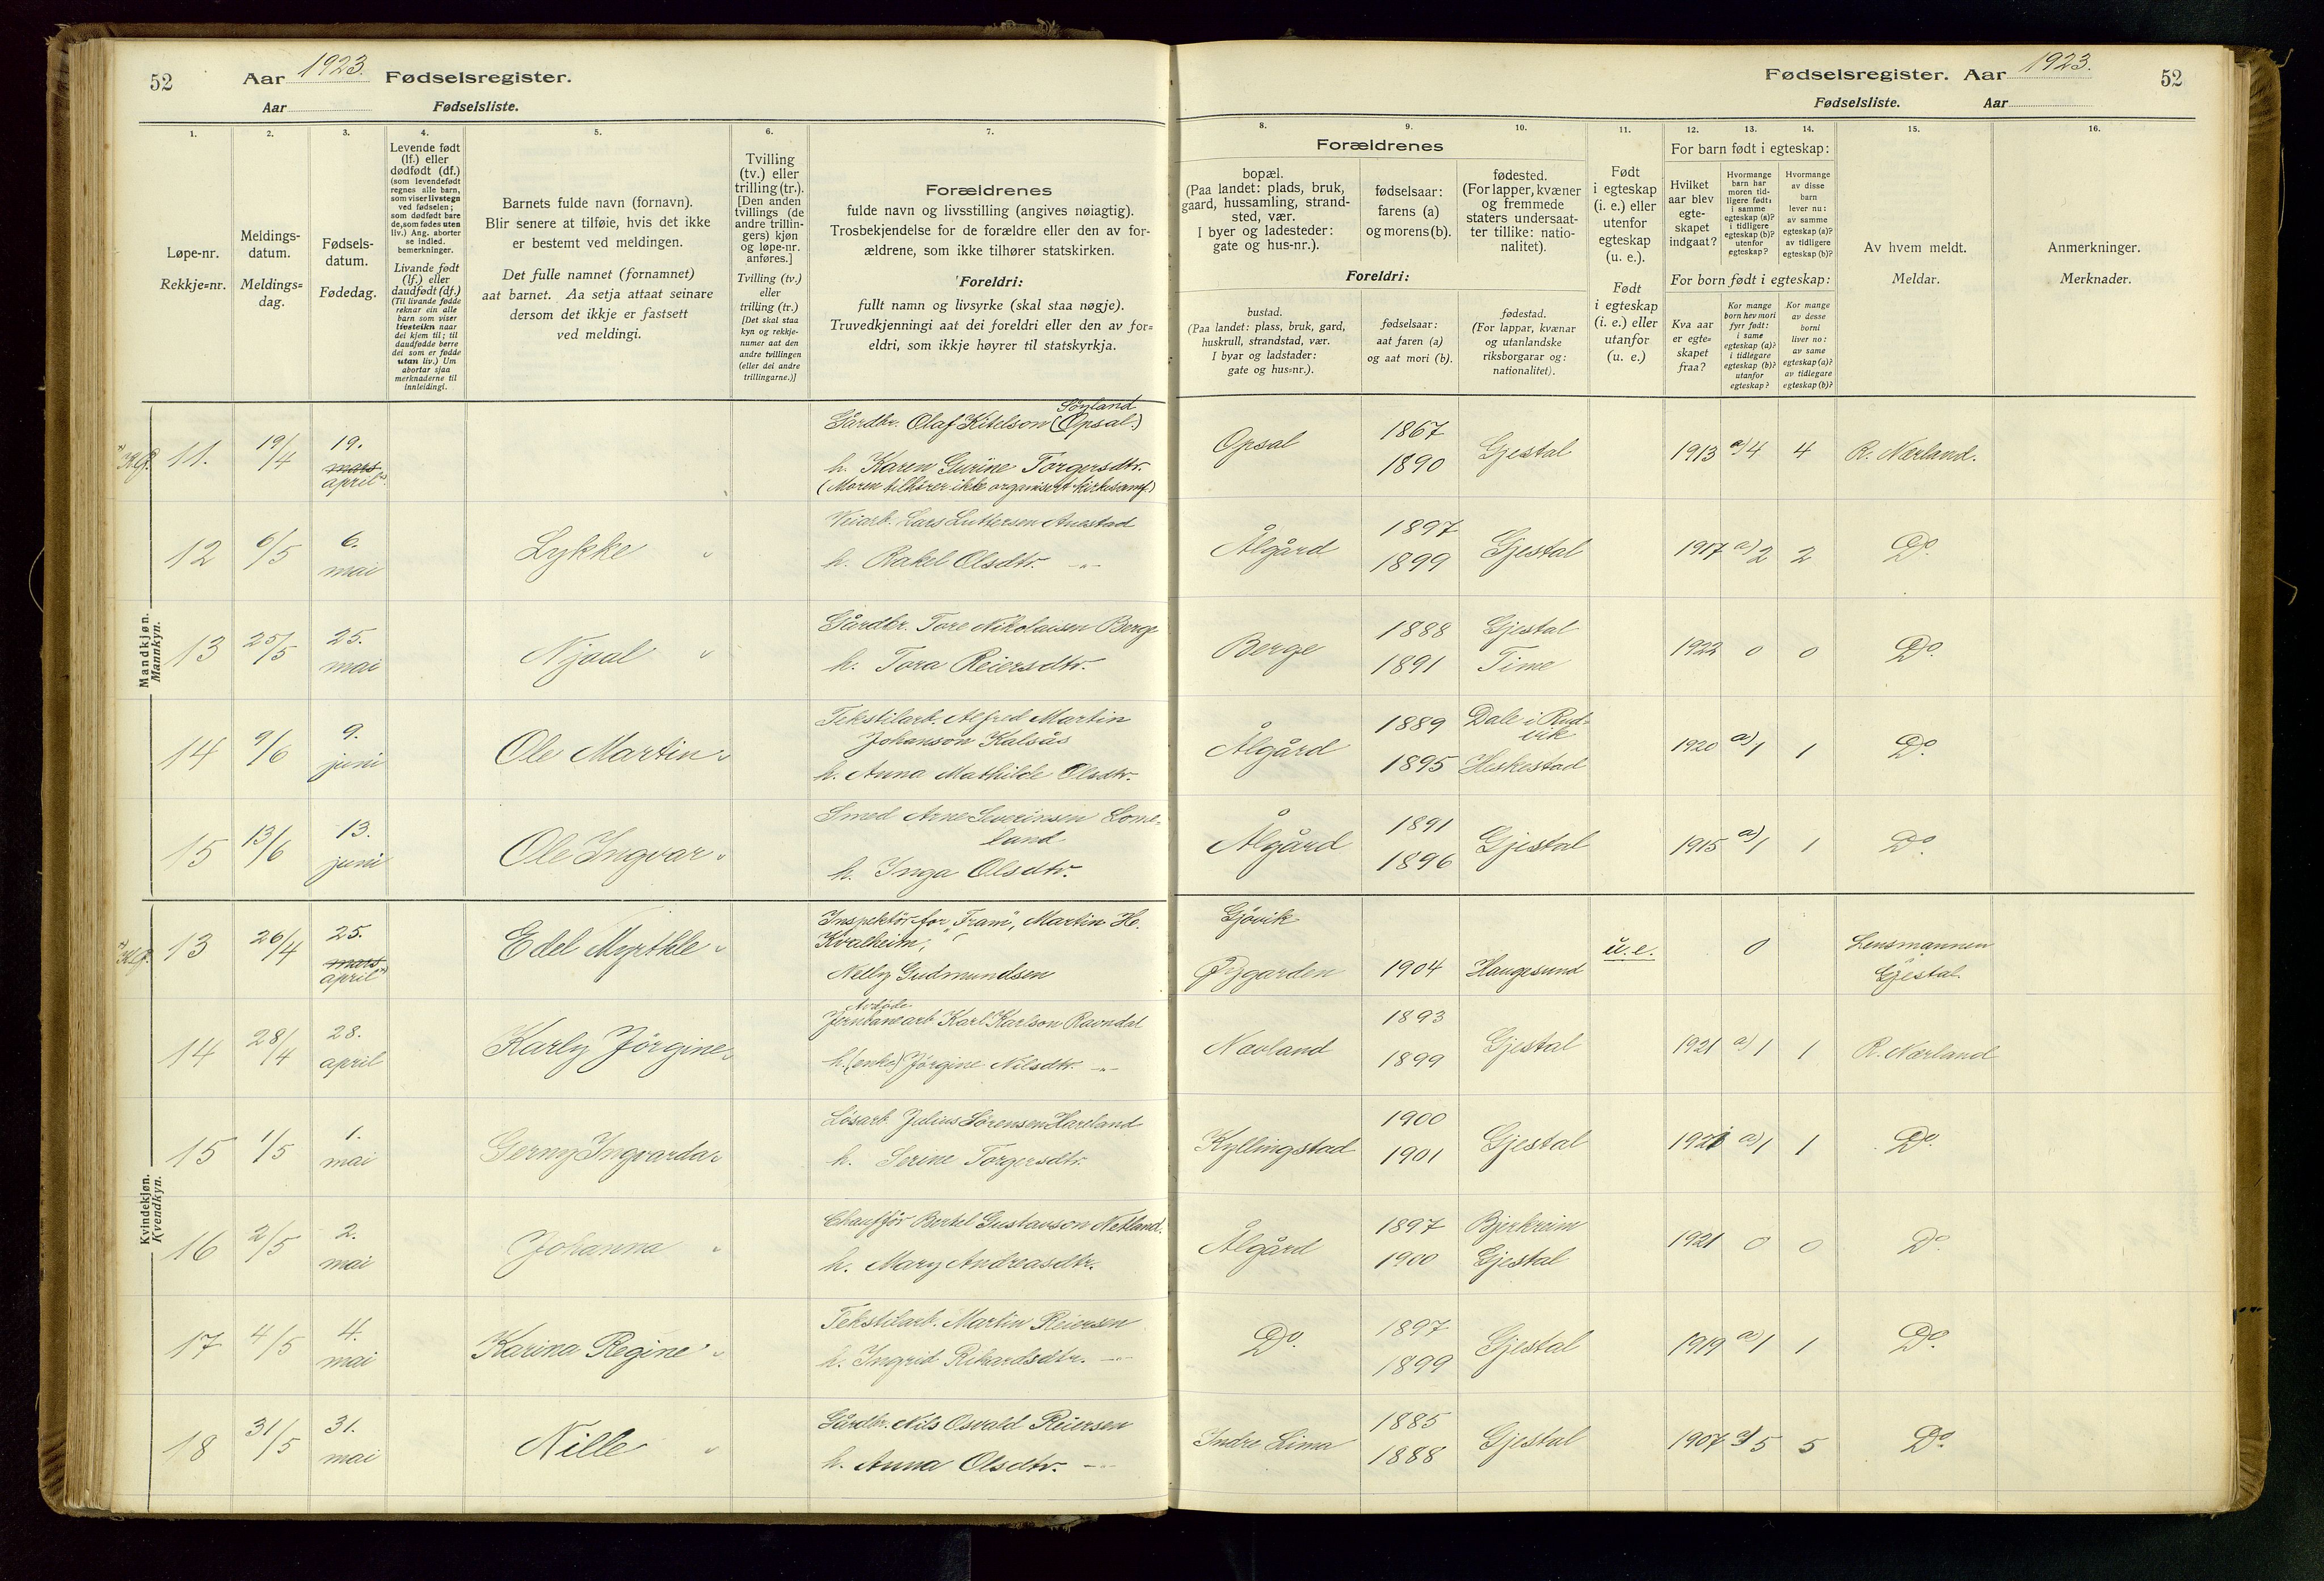 52 Aar 1923. Fødselsregister.
Aar Fødselsliste.
Fødselsregister. Aar 1923. 52
Fødselsliste. Aar
1. 2. 3. 4. 5. 6. 7.
Løpe-nr.
Rekkje=nr.
Meldings-
datum.
Meldings=
dag.
Fødsels-
datum.
Fødedag.
Levende født
(lf.) eller
dødfødt (df.)
(som levendefødt
regnes alle barn,
som viser livstegn
ved fødselen;
som dødfødt bare
de, som fødes uten
liv.) Ang. aborter
se indled.
bemerkninger.
Livande født
(lf.) eller
daudfødt (df.)
(Til livande fødde
reknar ein alle
barn som viser
livsteikn naar
dei kjem til; til
daudfødde berre
dei som er fødde
utan liv.) Um
abortar sjaa
merknaderne til
innleidingi.
Barnets fulde navn (fornavn).
Blir senere at tilføie, hvis det ikke
er bestemt ved meldingen.
Det fulle namnet (fornamnet)
aat barnet. Aa setja attaat seinare
dersom det ikkje er fastsett
ved meldingi.
Tvilling
(tv.) eller
trilling (tr.).
[Den anden
tvillings (de
andre trillin-
gers) kjøn
og løpe-nr.
anføres.]
Tvilling (tv.)
eller
trilling (tr.)
[Det skal staa
kyn og rekkje-
numer aat den
andre tvillingen
(eller dei andre
trillingarne.)]
Forældrenes
fulde navn og livsstilling (angives nøiagtig).
Trosbekjendelse for de forældre eller den av for-
ældrene, som ikke tilhører statskirken.
Foreldri:
fullt namn og livsyrke (skal staa nøgje).
Truvedkjenningi aat dei foreldri eller den av for=
eldri, som ikkje høyrer til statskyrkja.
8. 9. 10. 11. 12. 13. 14. 15. 16.
Forældrenes
bopæl.
(Paa landet: plads, bruk,
gaard, hussamling, strand-
sted, vær.
I byer og ladesteder:
gate og hus-nr.).
fødselsaar:
farens (a)
og morens (b).
fødested.
(For lapper, kvæner
og fremmede
staters undersaat-
ter tillike: natio-
nalitet).
Foreldri:
bustad.
(Paa landet: plass, bruk, gard,
huskrull, strandstad, vær.
I byar og ladstader:
gate og hus=nr.).
fødselsaar:
aat faren (a)
og aat mori (b).
fødestad.
(For lappar, kvænar
og utanlandske
riksborgarar og:
nationalitet).
Født
i egteskap
(i. e.) eller
utenfor
egteskap
(u. e.).
Født
i egteskap
(i. e.) eller
utanfor
(u. e.)
For barn født i egteskap:
Hvilket
aar blev
egte-
skapet
indgaat?
Hvormange
barn har
moren tid-
ligere født:
i samme
egteskap (a)?
i tidligere
egteskap (b)?
utenfor
egteskap?
Hvormange
av disse
barn
lever nu:
av samme
egteskap (a)?
av tidligere
egteskap (b)?
For born født i egteskap:
Kva aar
er egte=
skapet
fraa?
Kor mange
born hev mori
fyrr født:
i same
egteskap (a)?
i tidlegare
egteskap (b)?
utanfor
egteskap?
Kor mange
av desse
borni
liver no:
av same
egteskap (a)?
av tidlegare
egteskap (b)?
Av hvem meldt.
Meldar.
Anmerkninger.
Merknader.
Mandkjøn.
Mannkyn.
11. 19/4 19. mars april
Gårdbr. Olaf Kitelson (Opsal.) Søyland
h. Karen Gurine Torgersdtr.
(Moren tilhører ikke organisert kirkesamf.)
Opsal 1867 1890 Gjestal 1913 a) 4 4 R. Nærland.
12 6/5 6. mai Lykke
Veiarb. Lars Luttersen Auestad
h. Rakel Olsdtr. -"-
Ålgård 1897 1899 Gjestal 1917 a) 2 2 Do.
13 25/5 25. mai Njaal
Gårdbr. Tore Nikolaisen Berge
h. Tora Reiersdtr.
Berge 1888 Gjestal 1891 Time 1922 0 0 Do.
14 9/6 9. juni Ole Martin
Tekstilarb. Alfred Martin
Johanson Kalsås
h. Anna Mathilde Olsdtr.
Ålgård 1889 Dale i Bud=
vik
1895 Heskestad 1920 a) 1 1 Do.
15 13/6 13. juni Ole Ingvar
Smed Arne Severinsen Lome-
land
h. Inga Olsdtr.
Ålgård 1891 1896 Gjestal 1915 a) 1 1 Do.
Kvindekjøn.
Kvendkyn.
13 26/4 25. mars april Edel Myrthle
Inspektør for "Fram", Martin H.
Kvalheim,
Nelly Gudmundsen
Gjøvik
Øygarden 1904 Haugesund u. e. 0 Lensmannen
Gjestal
14 28/4 28. april Karly Jørgine
Avdøde
Jernbanearb. Karl Karlson Ravndal
h. (enke) Jørgine Nilsdtr. -"-
Navland 1893 1899 Gjestal 1921 a) 1 1 R. Nærland
15 1/5 1. mai Gerny Ingvarda
Løsarb. Julius Sørensen Haaland
h. Serine Torgersdtr.
Kyllingstad 1900 1901 Gjestal 1921 a) 1 1 Do.
16 2/5 2. mai Johanna
Chauffør Bertel Gustavson Netland.
h. Mary Andreasdtr.
Ålgård 1897 Bjerkreim 1900 Gjestal 1921 0 0 Do.
17 4/5 4. mai Karina Regine
Tekstilarb. Martin Reiersen
h. Ingrid Rikardsdtr. -"-
Do. 1897 1899 Gjestal 1919 a) 1 1 Do.
18 31/5 31. mai Nille
Gårdbr. Nils Osvald Reiersen
h. Anna Olsdtr. -"-
Indre Lima 1885 1888 Gjestal 1907 a) 5 5 Do.